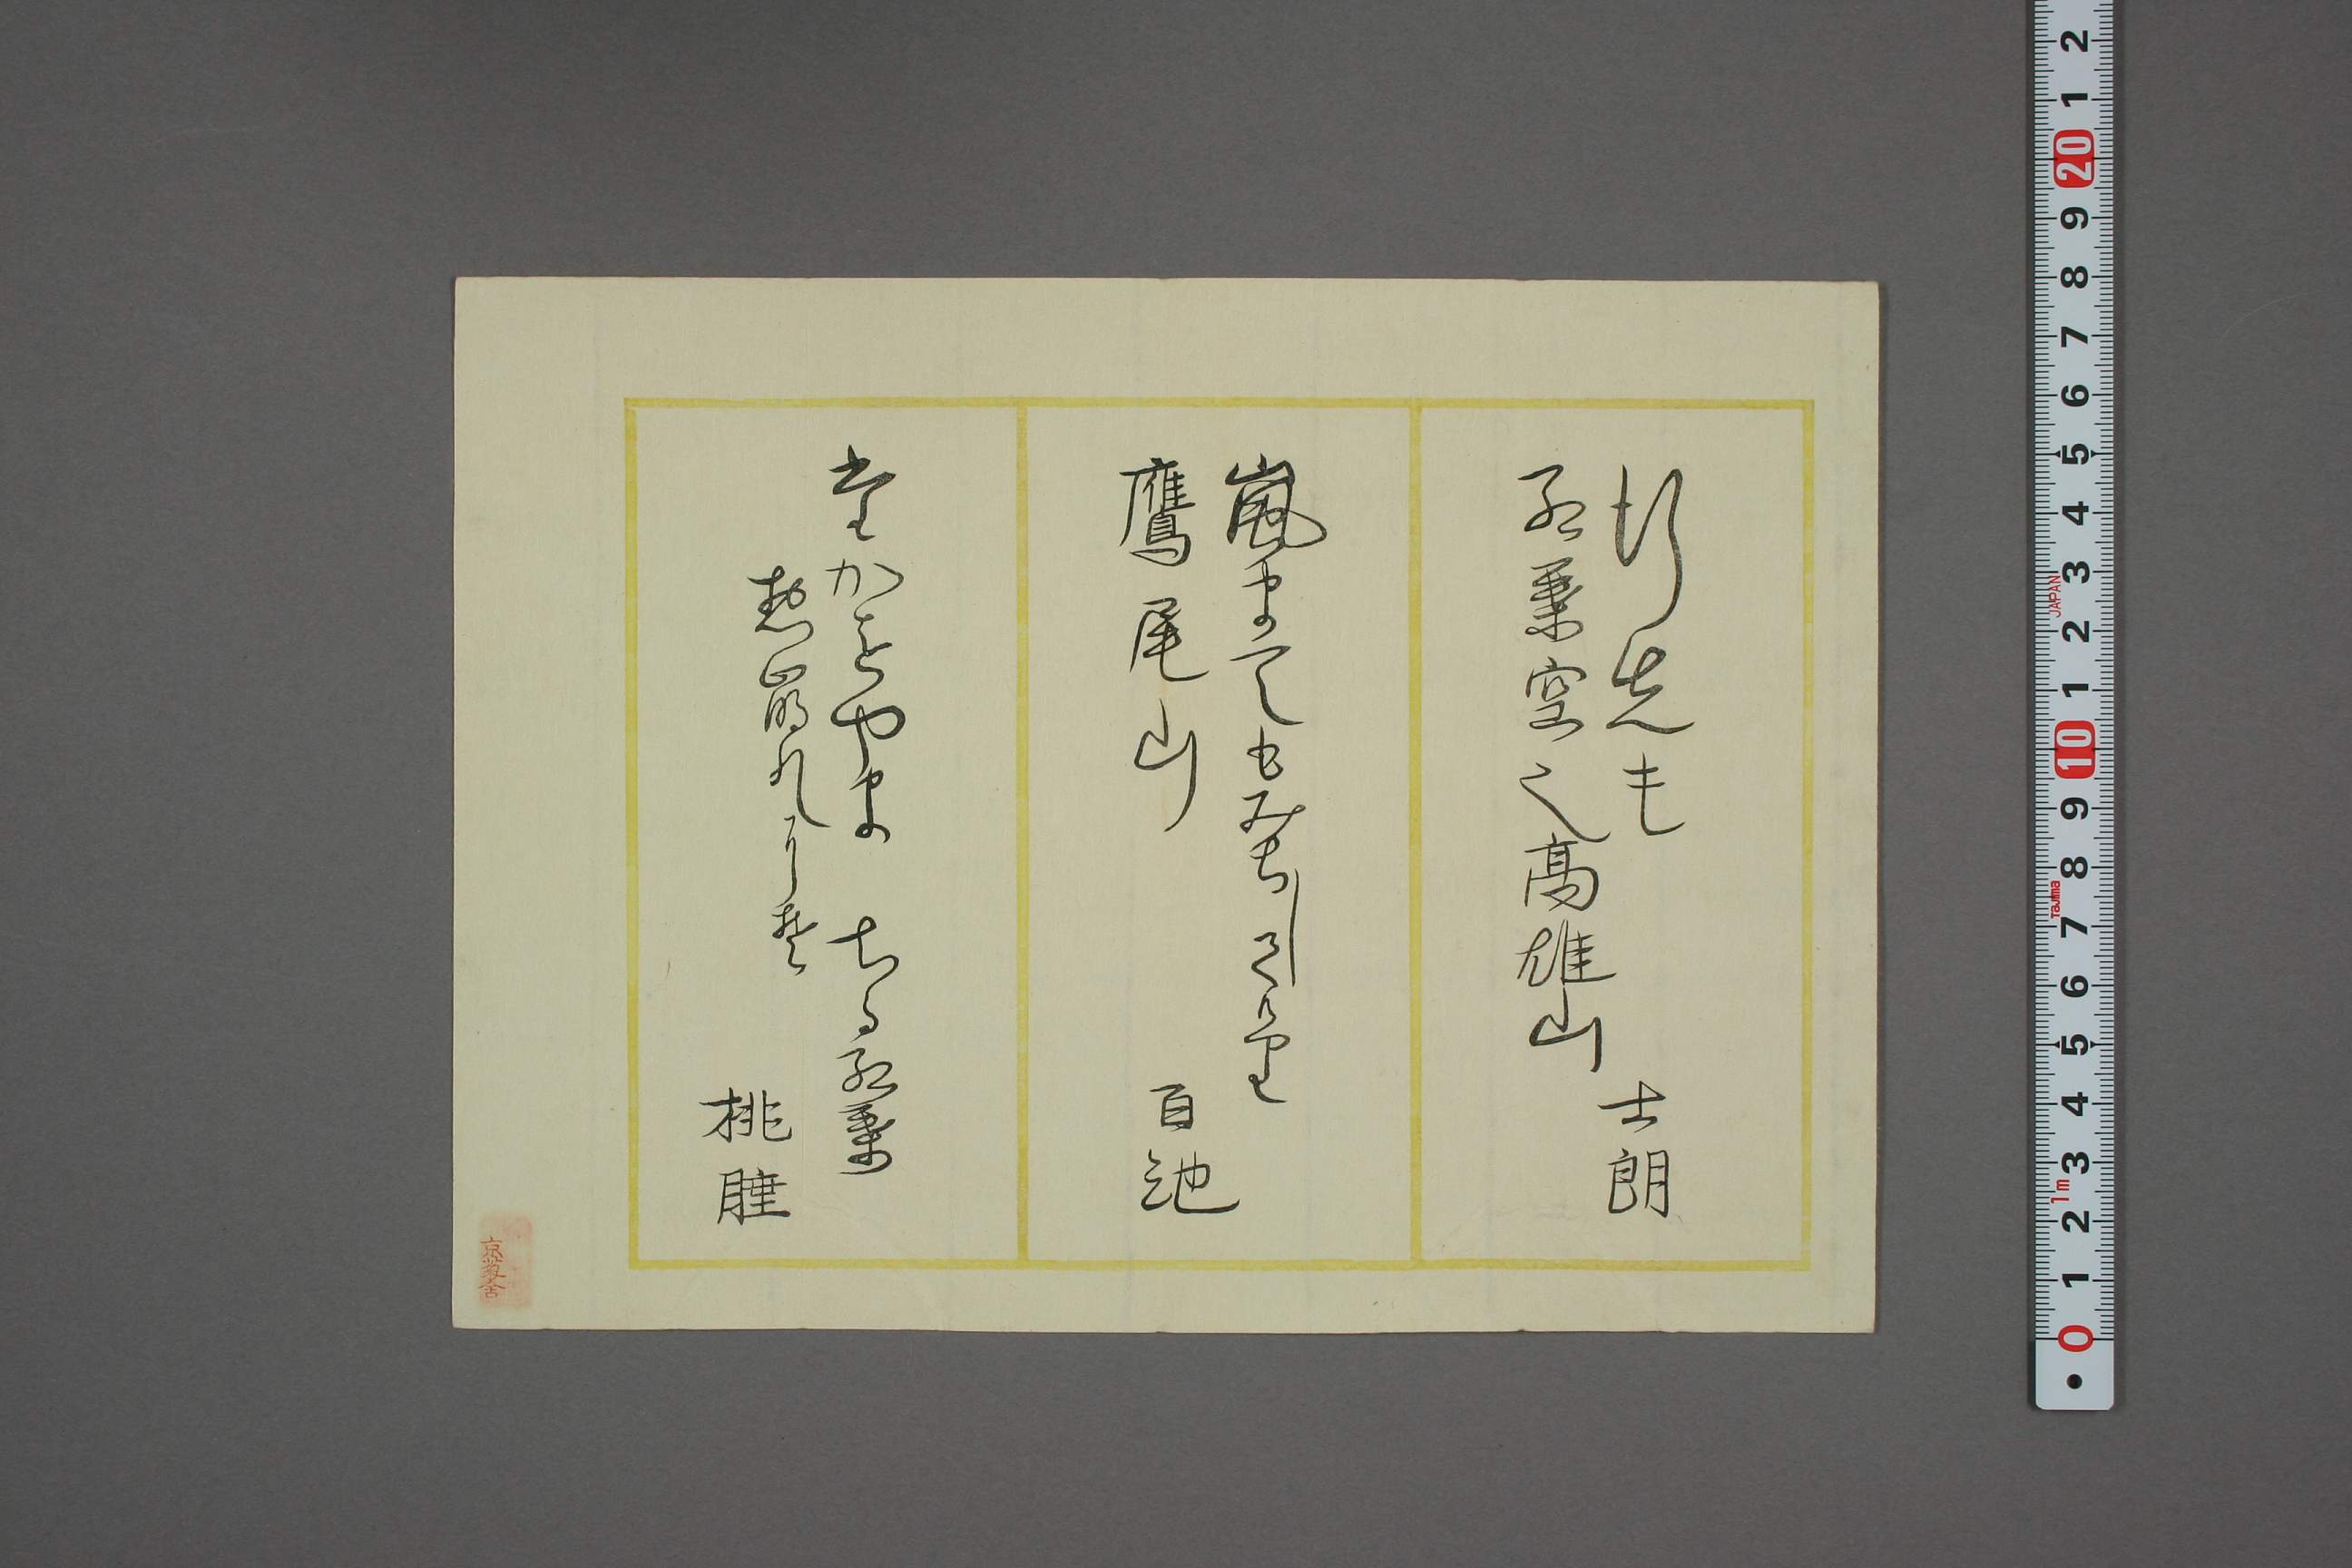 行先も
紅葉空之高雄山
士朗
嵐まてもみちしにけり
鷹尾山
百池
たかをやま ちる紅葉
桃睡
2
1
20
9
8
7
6
5
4
3
JAPAN
2
1
10
9
8
Tajima
7
6
5
4
3
1m
2
1
0